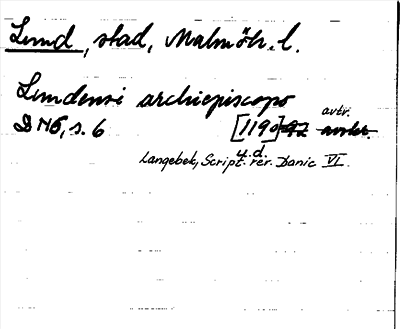 Lund, stad, Malmöh. l.
Lundensi archiepiscopo
avtr.
DN6, s. 6 [1190]-92 avskr.
u.d.
Langebek, Script. rer. Danic VI.